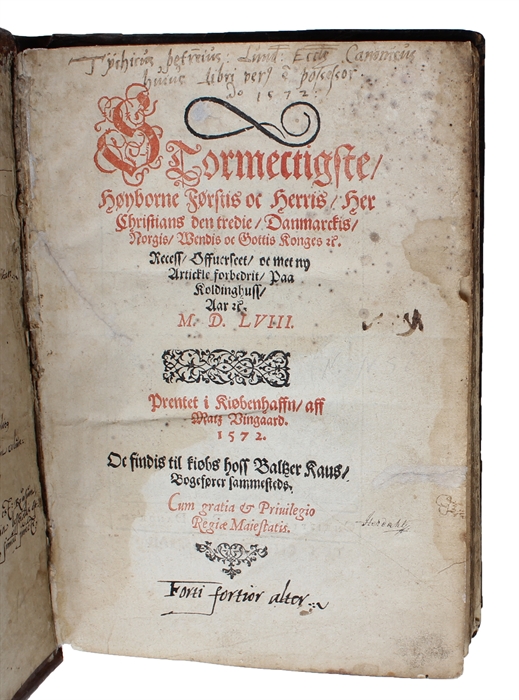 Tychicus petreius: Lund: Eccle: Canonicus
huius libri verus est possessor
Ao 1572.
STormectigste/
Høyborne Førstis oc Herris/ Her
Christians den tredie/ Danmarckis/
Norgis/ Wendis oc Gottis Konges &c.
Recess/ Offuerseet/ oc met ny
Artickle forbedrit/ Paa
Koldinghuss/
Aar &c.
M. D. LVIII.
Prentet i Kiøbenhaffn/ aff
Matz Vingaard.
1572.
Oc findis til kiøbs hoss Baltzer Kaus/
Bogefører sammesteds.
Cum gratia & Privilegio
Regiæ Maiestatis.
Forti fortior alter